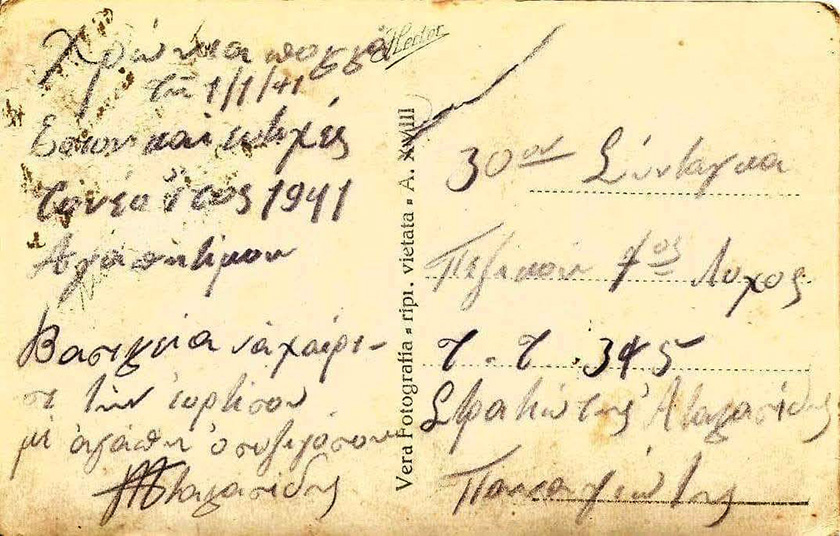 Χρώνεια πολλά
τη 1/1/41
Εστον και ευτηχές
το νέο έτος 1941
Αγαπητήμου
Βασιλεία να χαίρε-
σε την εορτίσου
με αγάπη ο συζιγόσου
Αταλασίδης
Hector
Vera Fotografia - ripr. vietata - A. XVIII
30ον Σύνταγμα
Πεζικού 7ος Λυχος
Τ. Τ. 345
Στρατιώτης Αταλασίδης
Παναγιώτης